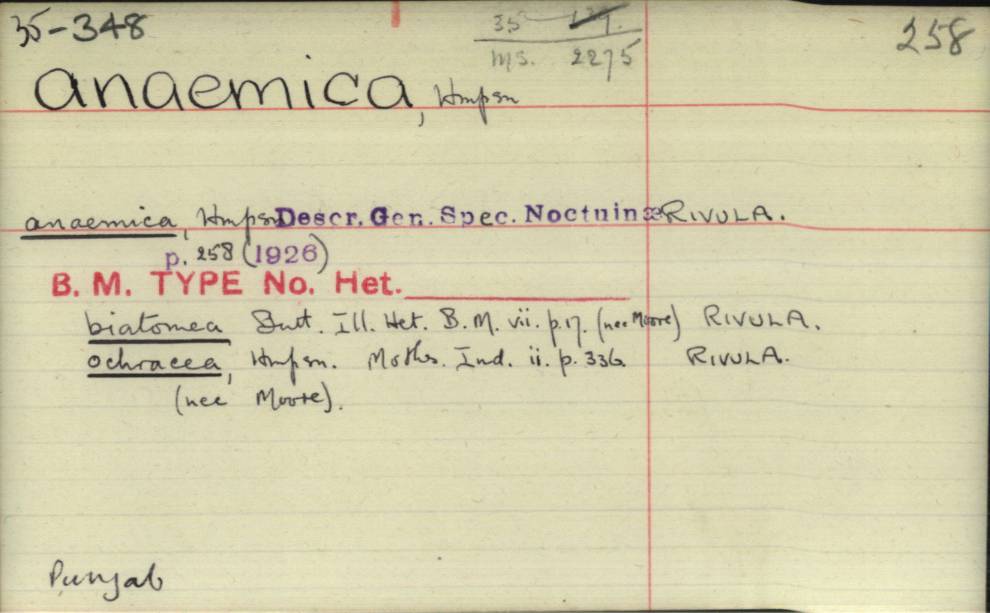 35-348 35 258
MS. 2275
anaemica, Hmpsn
anaemica, Hmpsn Descr. Gen. Spec. Noctuinæ RIVULA.
p. 258 (1926)
B. M. TYPE No. Het.
biatomea Butt. Ill. Het. B. M. vii. p. 17. (nec Moore) RIVULA.
ochracea, Hmpsn. Moths. Ind. ii. p. 336. RIVULA.
(nec Moore).
Punjab